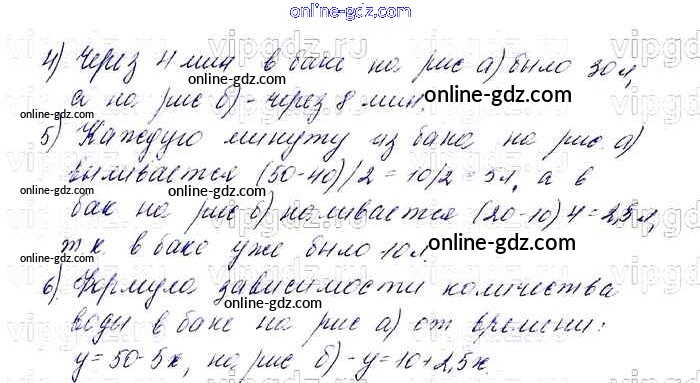 online-gdz.com
4) Через 4 мин в баке на рис а) было 30 л,
а на рис б) - через 8 мин.
5) Каждую минуту из бака на рис. а)
выливается (50-40)/2 = 10/2 = 5л, а в
бак на рис б) наливается (20-10) 4 = 2,5 л,
т.к. в баке уже было 10 л.
6) Формула зависимости количества
воды в баке на рис а) от времени:
y = 50-5x, на рис б) - y = 10+2,5x
online-gdz.com
online-gdz.com
online-gdz.com
online-gdz.com
online-gdz.com
online-gdz.com
online-gdz.com
online-gdz.com
vipgdz.ru